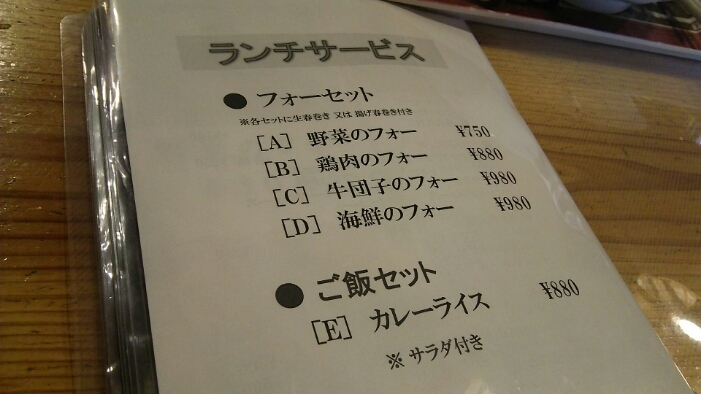 ランチサービス
● フォーセット
※各セットに生春巻き 又は 揚げ春巻き付き
[A] 野菜のフォー ¥750
[B] 鶏肉のフォー ¥880
[C] 牛団子のフォー ¥980
[D] 海鮮のフォー ¥980
● ご飯セット
[E] カレーライス ¥880
※ サラダ付き